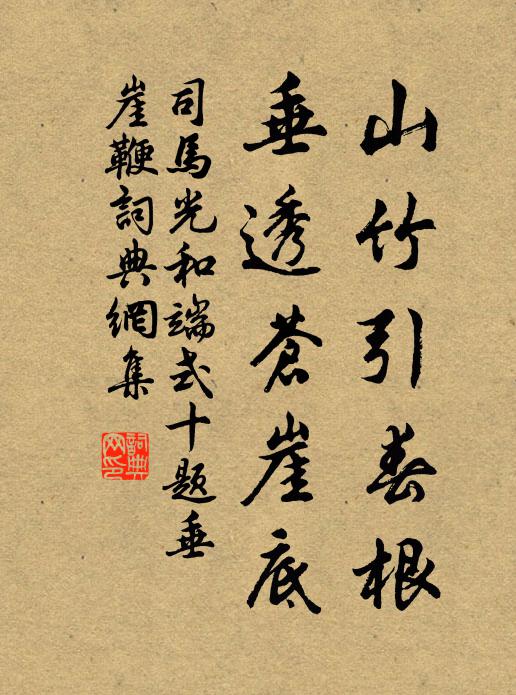 山竹引春根
垂透蒼崖底
司馬光和端式十題垂
崖鞭詞典網集
詞典網印